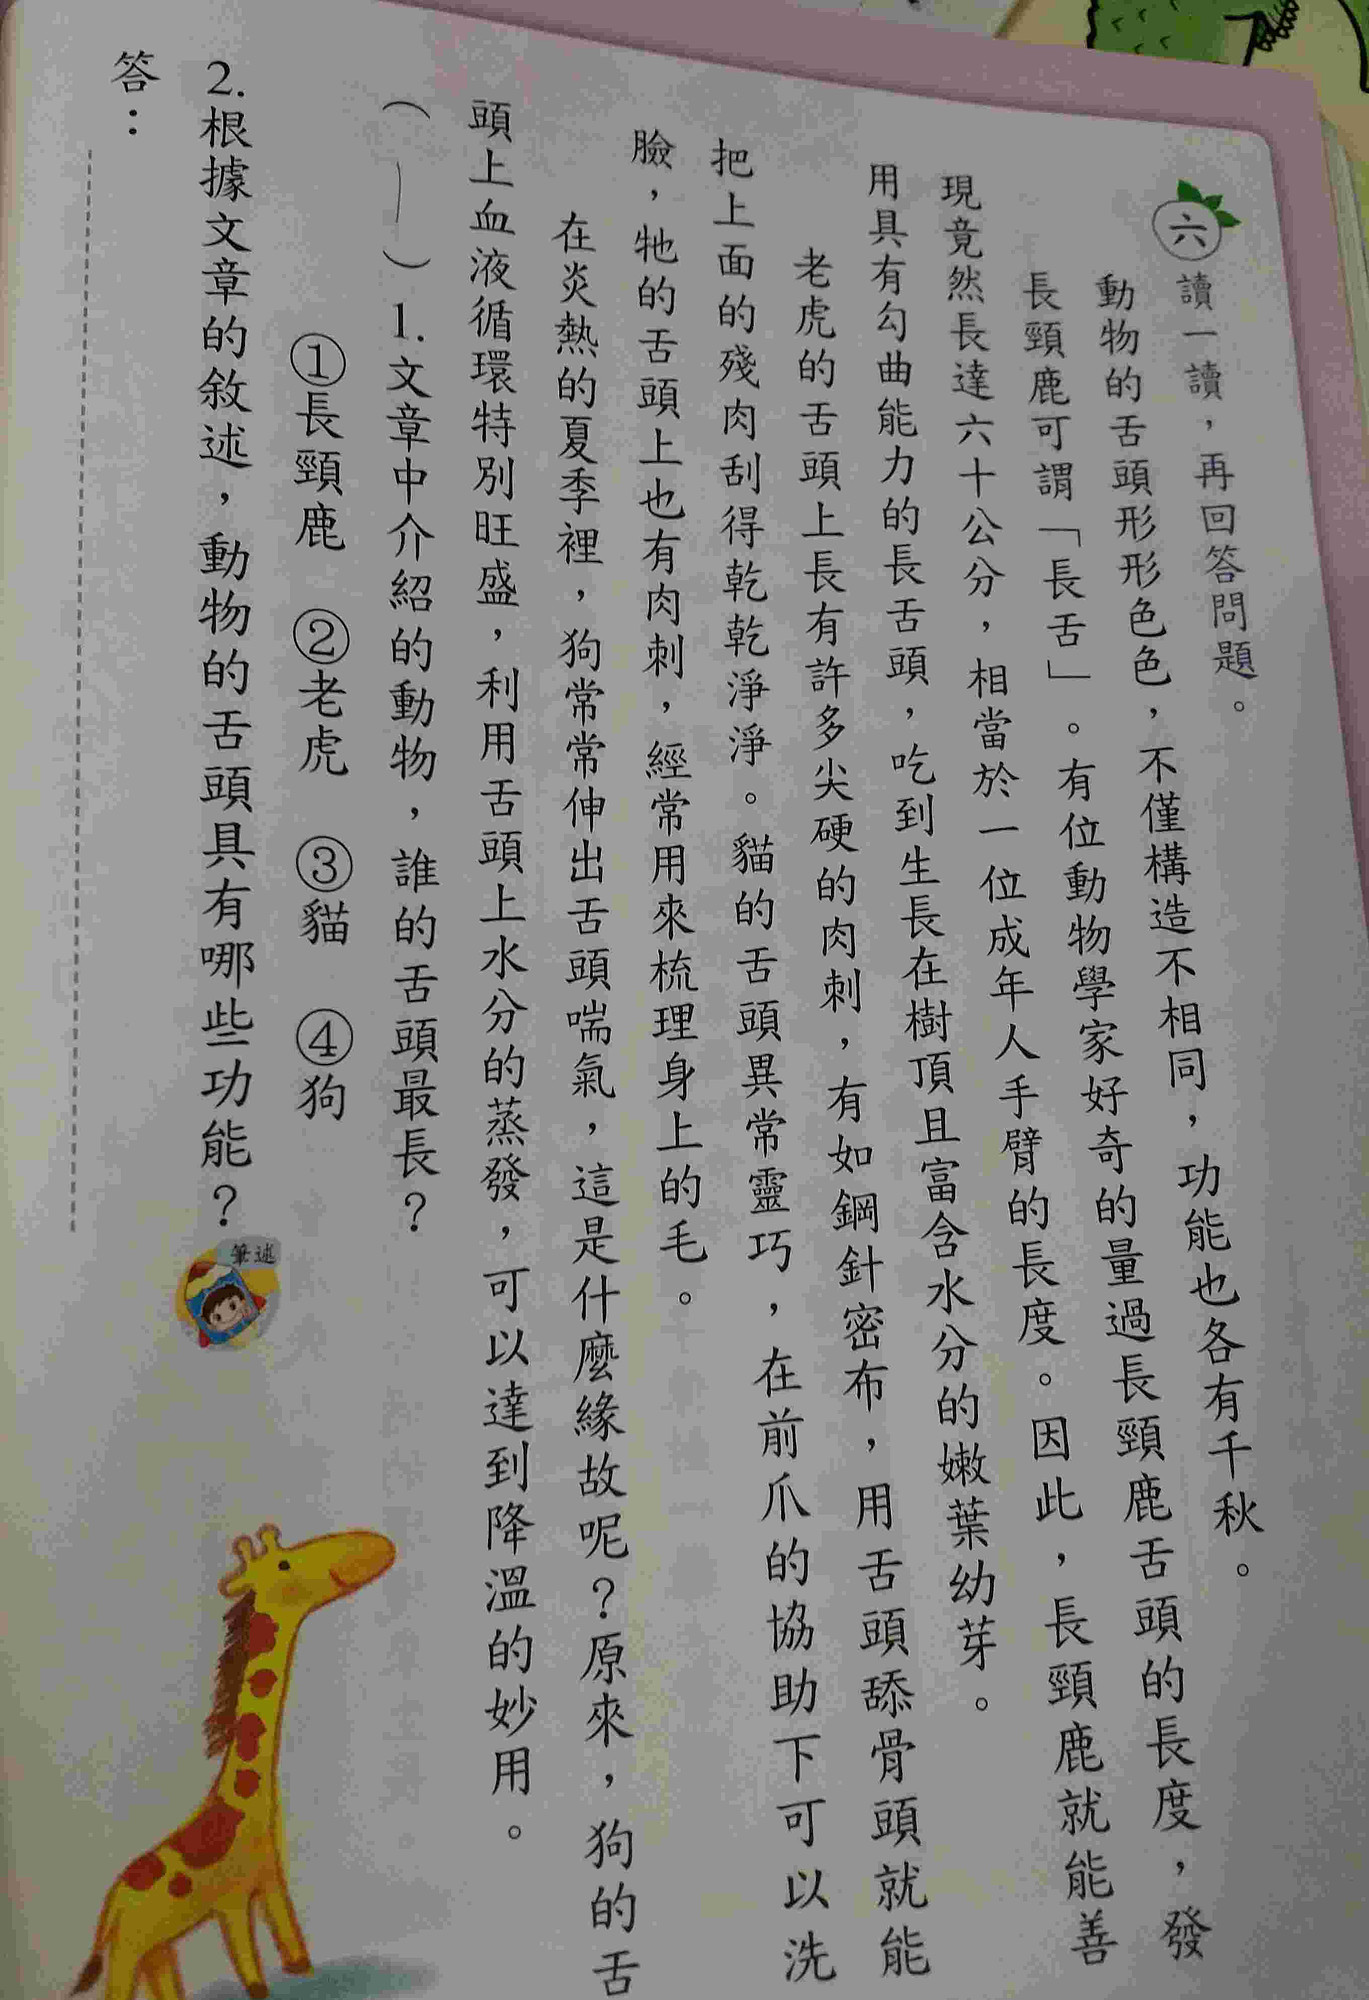 六 讀一讀，再回答問題。
動物的舌頭形形色色，不僅構造不相同，功能也各有千秋。
長頸鹿可謂「長舌」。有位動物學家好奇的量過長頸鹿舌頭的長度，發
現竟然長達六十公分，相當於一位成年人手臂的長度。因此，長頸鹿就能善
用具有勾曲能力的長舌頭，吃到生長在樹頂且富含水分的嫩葉幼芽。
老虎的舌頭上長有許多尖硬的肉刺，有如鋼針密布，用舌頭舔骨頭就能
把上面的殘肉刮得乾乾淨淨。貓的舌頭異常靈巧，在前爪的協助下可以洗
臉，牠的舌頭上也有肉刺，經常用來梳理身上的毛。
在炎熱的夏季裡，狗常常伸出舌頭喘氣，這是什麼緣故呢？原來，狗的舌
頭上血液循環特別旺盛，利用舌頭上水分的蒸發，可以達到降溫的妙用。
（ ｜ ）1.文章中介紹的動物，誰的舌頭最長？
①長頸鹿 ②老虎 ③貓 ④狗
2.根據文章的敘述，動物的舌頭具有哪些功能？
筆述
答：